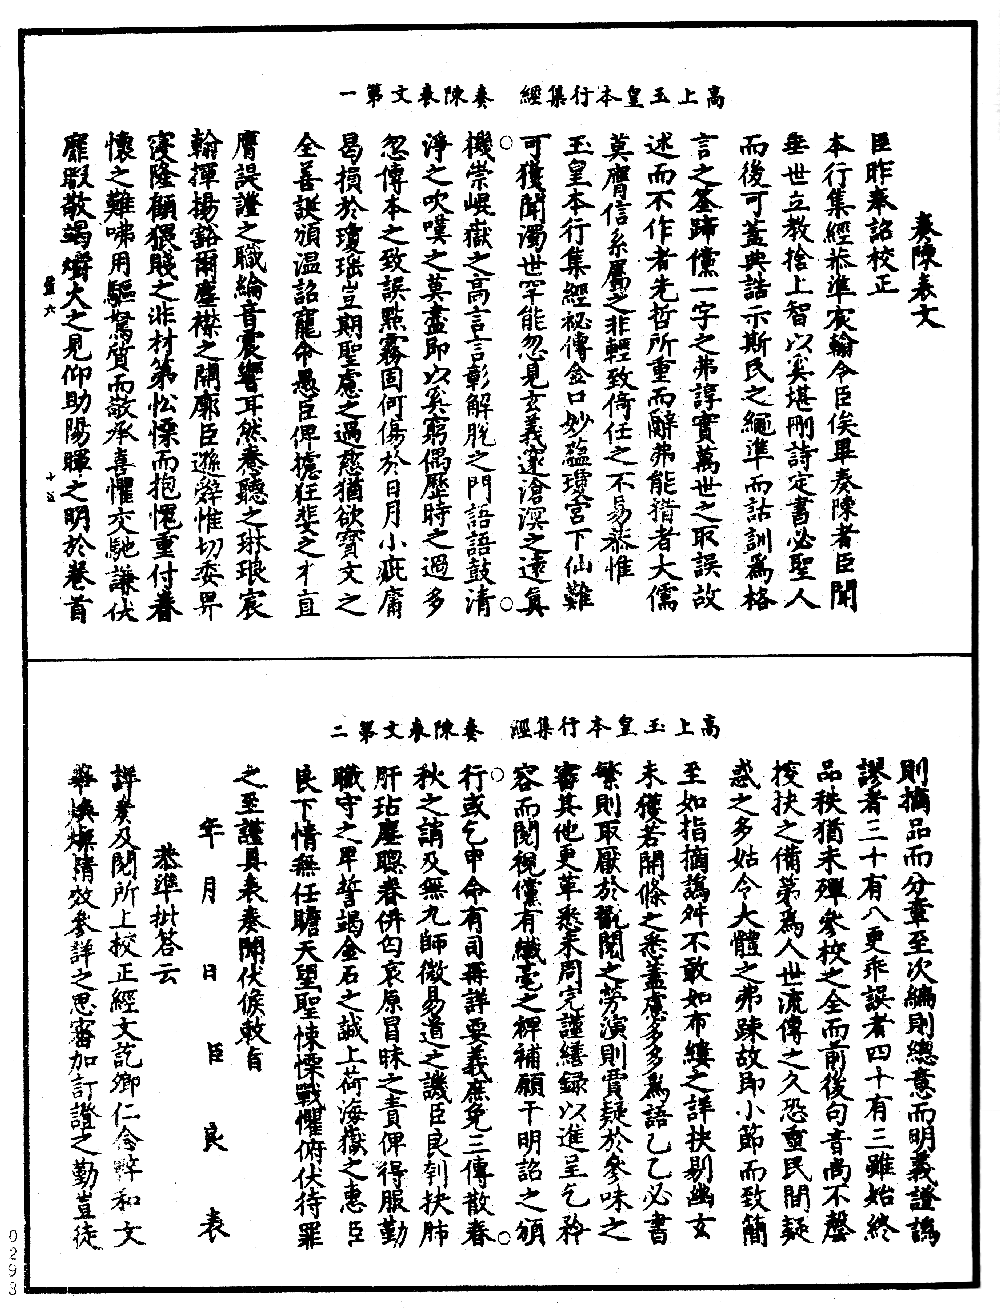 高上玉皇本行集經　奏陳表文第一
奏陳表文
臣昨奉詔校正
本行集經恭準宸翰令臣俟畢奏陳者臣聞
垂世立教捨上智以奚堪刪詩定書必聖人
而後可蓋典誥示斯民之繩準而詁訓爲格
言之筌蹄儻一字之弗諄實萬世之取誤故
述而不作者先哲所重而辭弗能措者大儒
莫膺信系屬之非輕致倚任之不易恭惟
玉皇本行集經祕傳金口妙蘊瓊宮下仙難
可獲聞濁世罕能忽見玄義邃滄溟之遠真
機崇崐嶽之高言言彰解脫之門語語鼓清
淨之吹嘆之莫盡即以奚窮偶歷時之過多
忽傳本之致誤點霧固何傷於日月小疵庸
曷損於瓊瑤豈期聖慮之過慈猶欲寶文之
全善誕頒温詔寵命愚臣俾攄狂斐之才直
膺諟證之職綸音震響耳然奏聽之琳琅宸
翰揮揚豁爾塵襟之開廓臣遜辭惟切委畀
寖隆顧猥賤之非材第忪慄而抱愧重付眷
懷之難咈用驅駑質而敬承喜懼交馳謙伏
靡暇敬竭爝火之見仰助陽暉之明於卷首
高上玉皇本行集經　奏陳表文第二
則摘品而分章至次編則總意而明義證譌
謬者三十有八更乖誤者四十有三雖始終
品秩猶未殫參校之全而前後句音尚不罄
捘抉之備第爲人世流傳之久恐重民間疑
惑之多姑令大體之弗踈故即小節而致簡
至如指摘譌舛不敢如布縷之詳抉剔幽玄
未獲若開條之悉蓋慮多多爲語乙乙必書
繁則取厭於翫閱之勞演則賈疑於參味之
審其他更革悉未周完謹繕錄以進呈乞矜
容而閱視儻有纖毫之稗補願干明詔之頒
行或乞申命有司再詳要義庶免三傳散春
秋之誚及無九師微易道之譏臣良刳抉肺
肝玷塵聰眷併匄哀原冒昧之責俾得服勤
職守之卑誓竭金石之誠上荷海嶽之惠臣
良下情無任瞻天望聖悚慄戰懼俯伏待罪
之至謹具表奏聞伏候敕旨
年　月　日　臣　良　表
恭準批答云
詳奏及閱所上校正經文訖卿仁念辭和文
華煥爍精效參詳之思審加訂證之勤豈徒
十五
0293